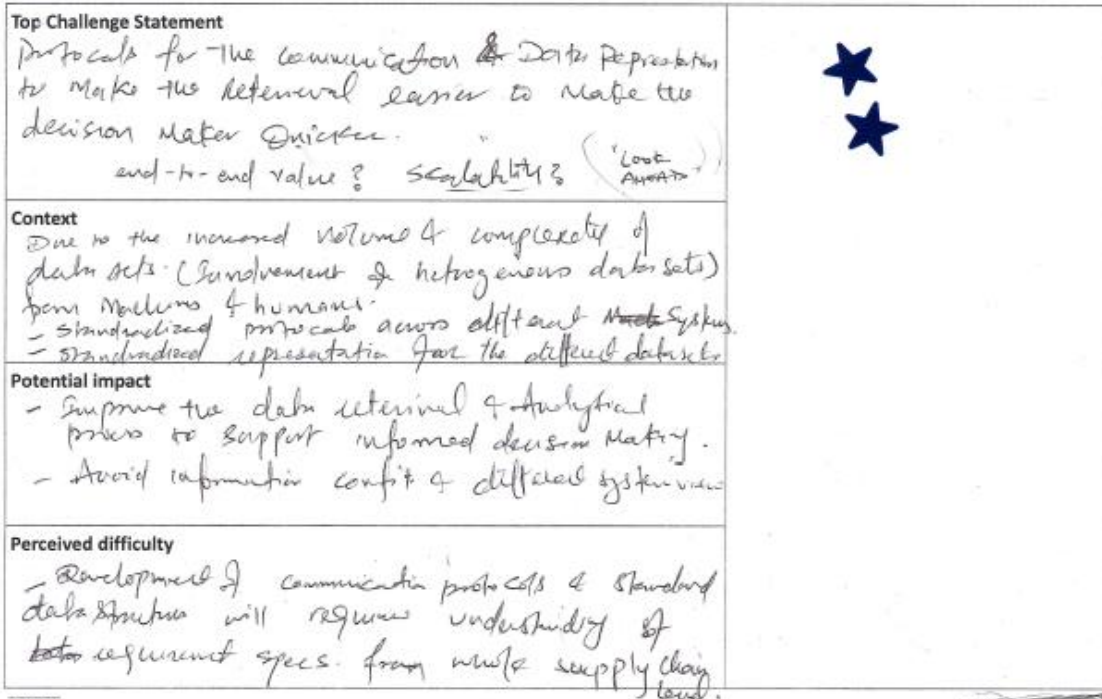 Top Challenge Statement
Protocals for the communication & Data Represtation
to make the reterieval easier to make the
decision maker Quicker.
end-to-end value? scalability? "LOOK
AHEAD"
Context
Due to the increased volume & complexity of
data sets. (Involvement of hetrogenous data sets)
from machines & humans.
- Standradized protocals across different Systems.
- Standradized representation for the different datasets
Potential impact
- Improve the data reterival & Analytical
process to support informed decision Making.
- Avoid information & different system view
Perceived difficulty
- Development of communication protocols & standard
data structures will require understanding of
requirement specs. from whole supply chain